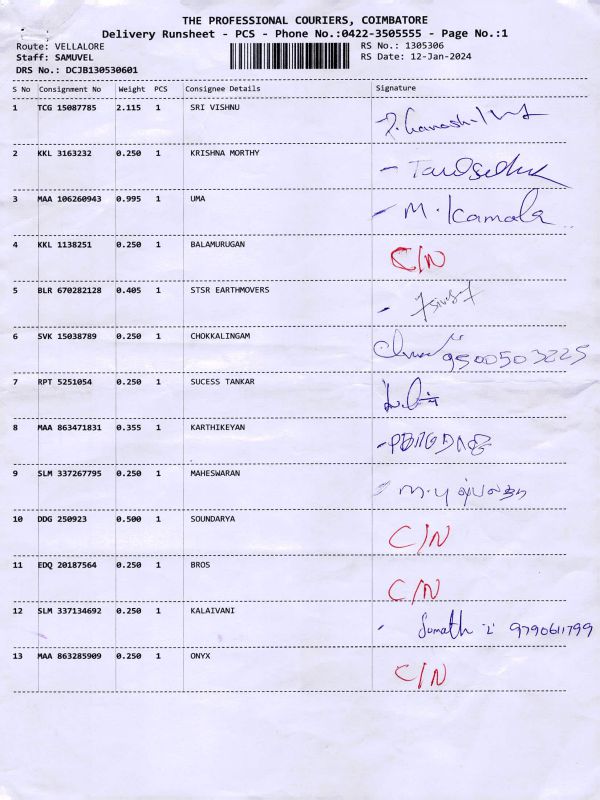 THE PROFESSIONAL COURIERS, COIMBATORE
Delivery Runsheet - PCS - Phone No.:0422-3505555 - Page No.:1
Route: VELLALORE RS No.: 1305306
Staff: SAMUVEL RS Date: 12-Jan-2024
DRS No.: DCJB130530601
S No Consignment No Weight PCS Consignee Details Signature
1 TCG 15087785 2.115 1 SRI VISHNU
2 KKL 3163232 0.250 1 KRISHNA MORTHY
3 MAA 106260943 0.995 1 UMA - M. Kamala
4 KKL 1138251 0.250 1 BALAMURUGAN C/N
5 BLR 670282128 0.405 1 STSR EARTHMOVERS
6 SVK 15038789 0.250 1 CHOKKALINGAM 9500503225
7 RPT 5251054 0.250 1 SUCESS TANKAR
8 MAA 863471831 0.355 1 KARTHIKEYAN
9 SLM 337267795 0.250 1 MAHESWARAN
10 DDG 250923 0.500 1 SOUNDARYA C/N
11 EDQ 20187564 0.250 1 BROS C/N
12 SLM 337134692 0.250 1 KALAIVANI 9790611799
13 MAA 863285909 0.250 1 ONYX C/N